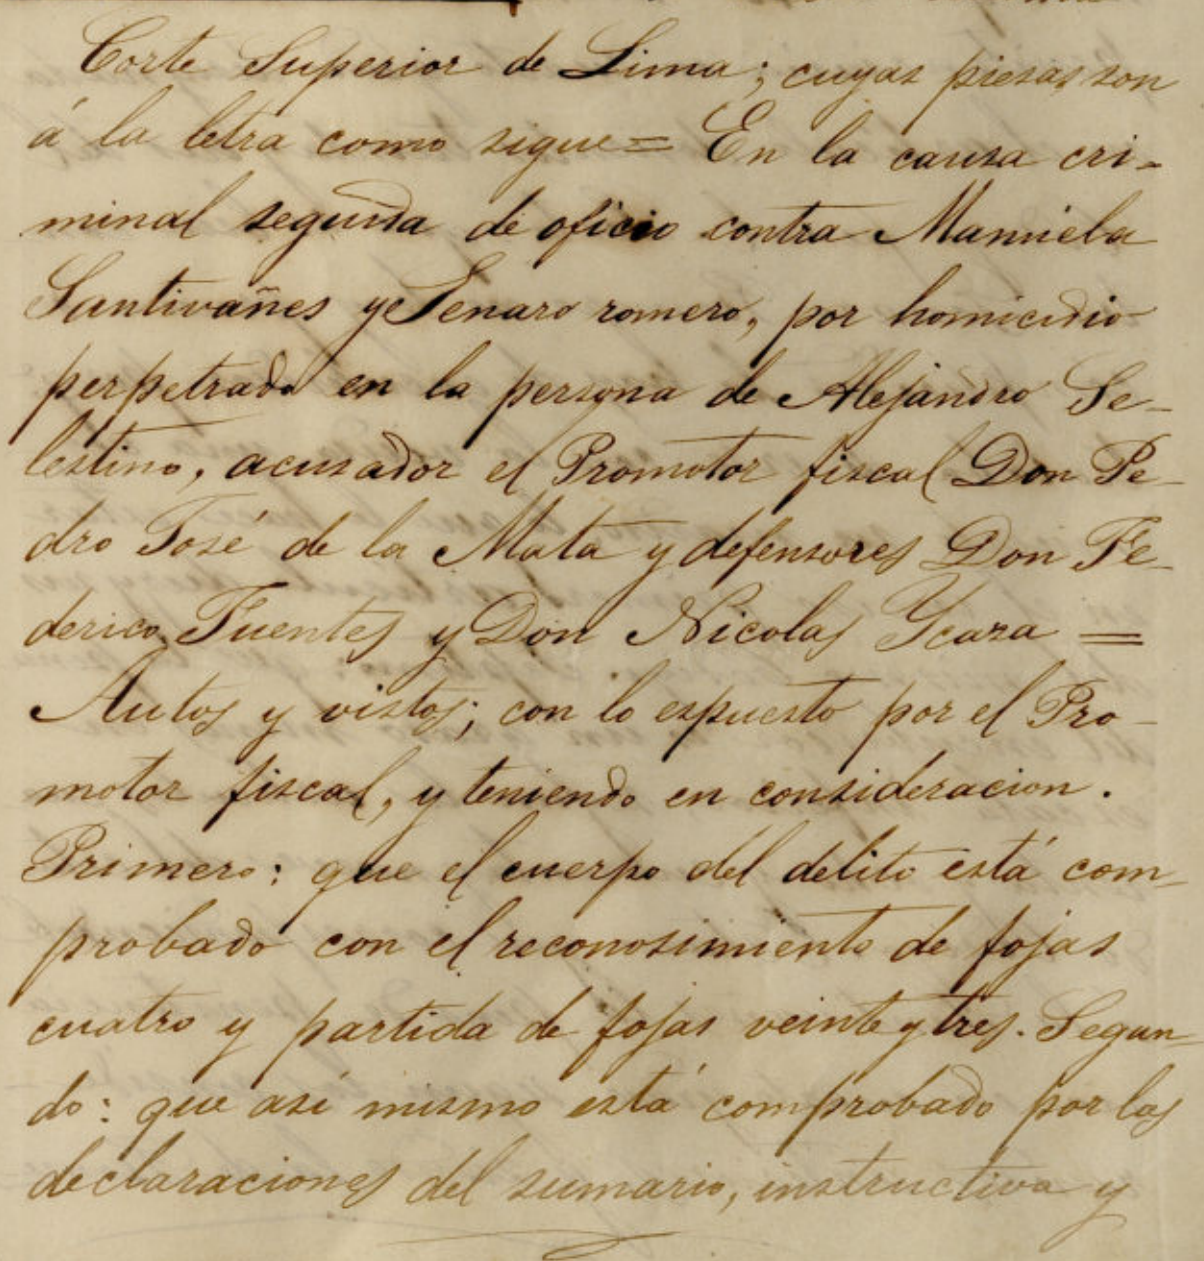 Corte Superior de Lima; cuyas piesas son
á la letra como sigue= En la causa cri-
minal seguida de oficio contra Manuela
Santivañes y Jenaro romero, por homicidio
perpetrado en la persona de Alejandro Se-
lestino, acusador el Promotor fiscal Don Pe-
dro José de la Mata y defensores Don Fe-
derico Fuentes y Don Nicolas Ycaza =
Autos y vistos; con lo espuesto por el Pro-
motor fiscal, y teniendo en consideracion.
Primero: que el cuerpo del delito está com-
probado con el reconosimiento de fojas
cuatro y partida de fojas veinte y tres. Segun-
do: que asi mismo está comprobado por las
declaraciones del sumario, instructiva y